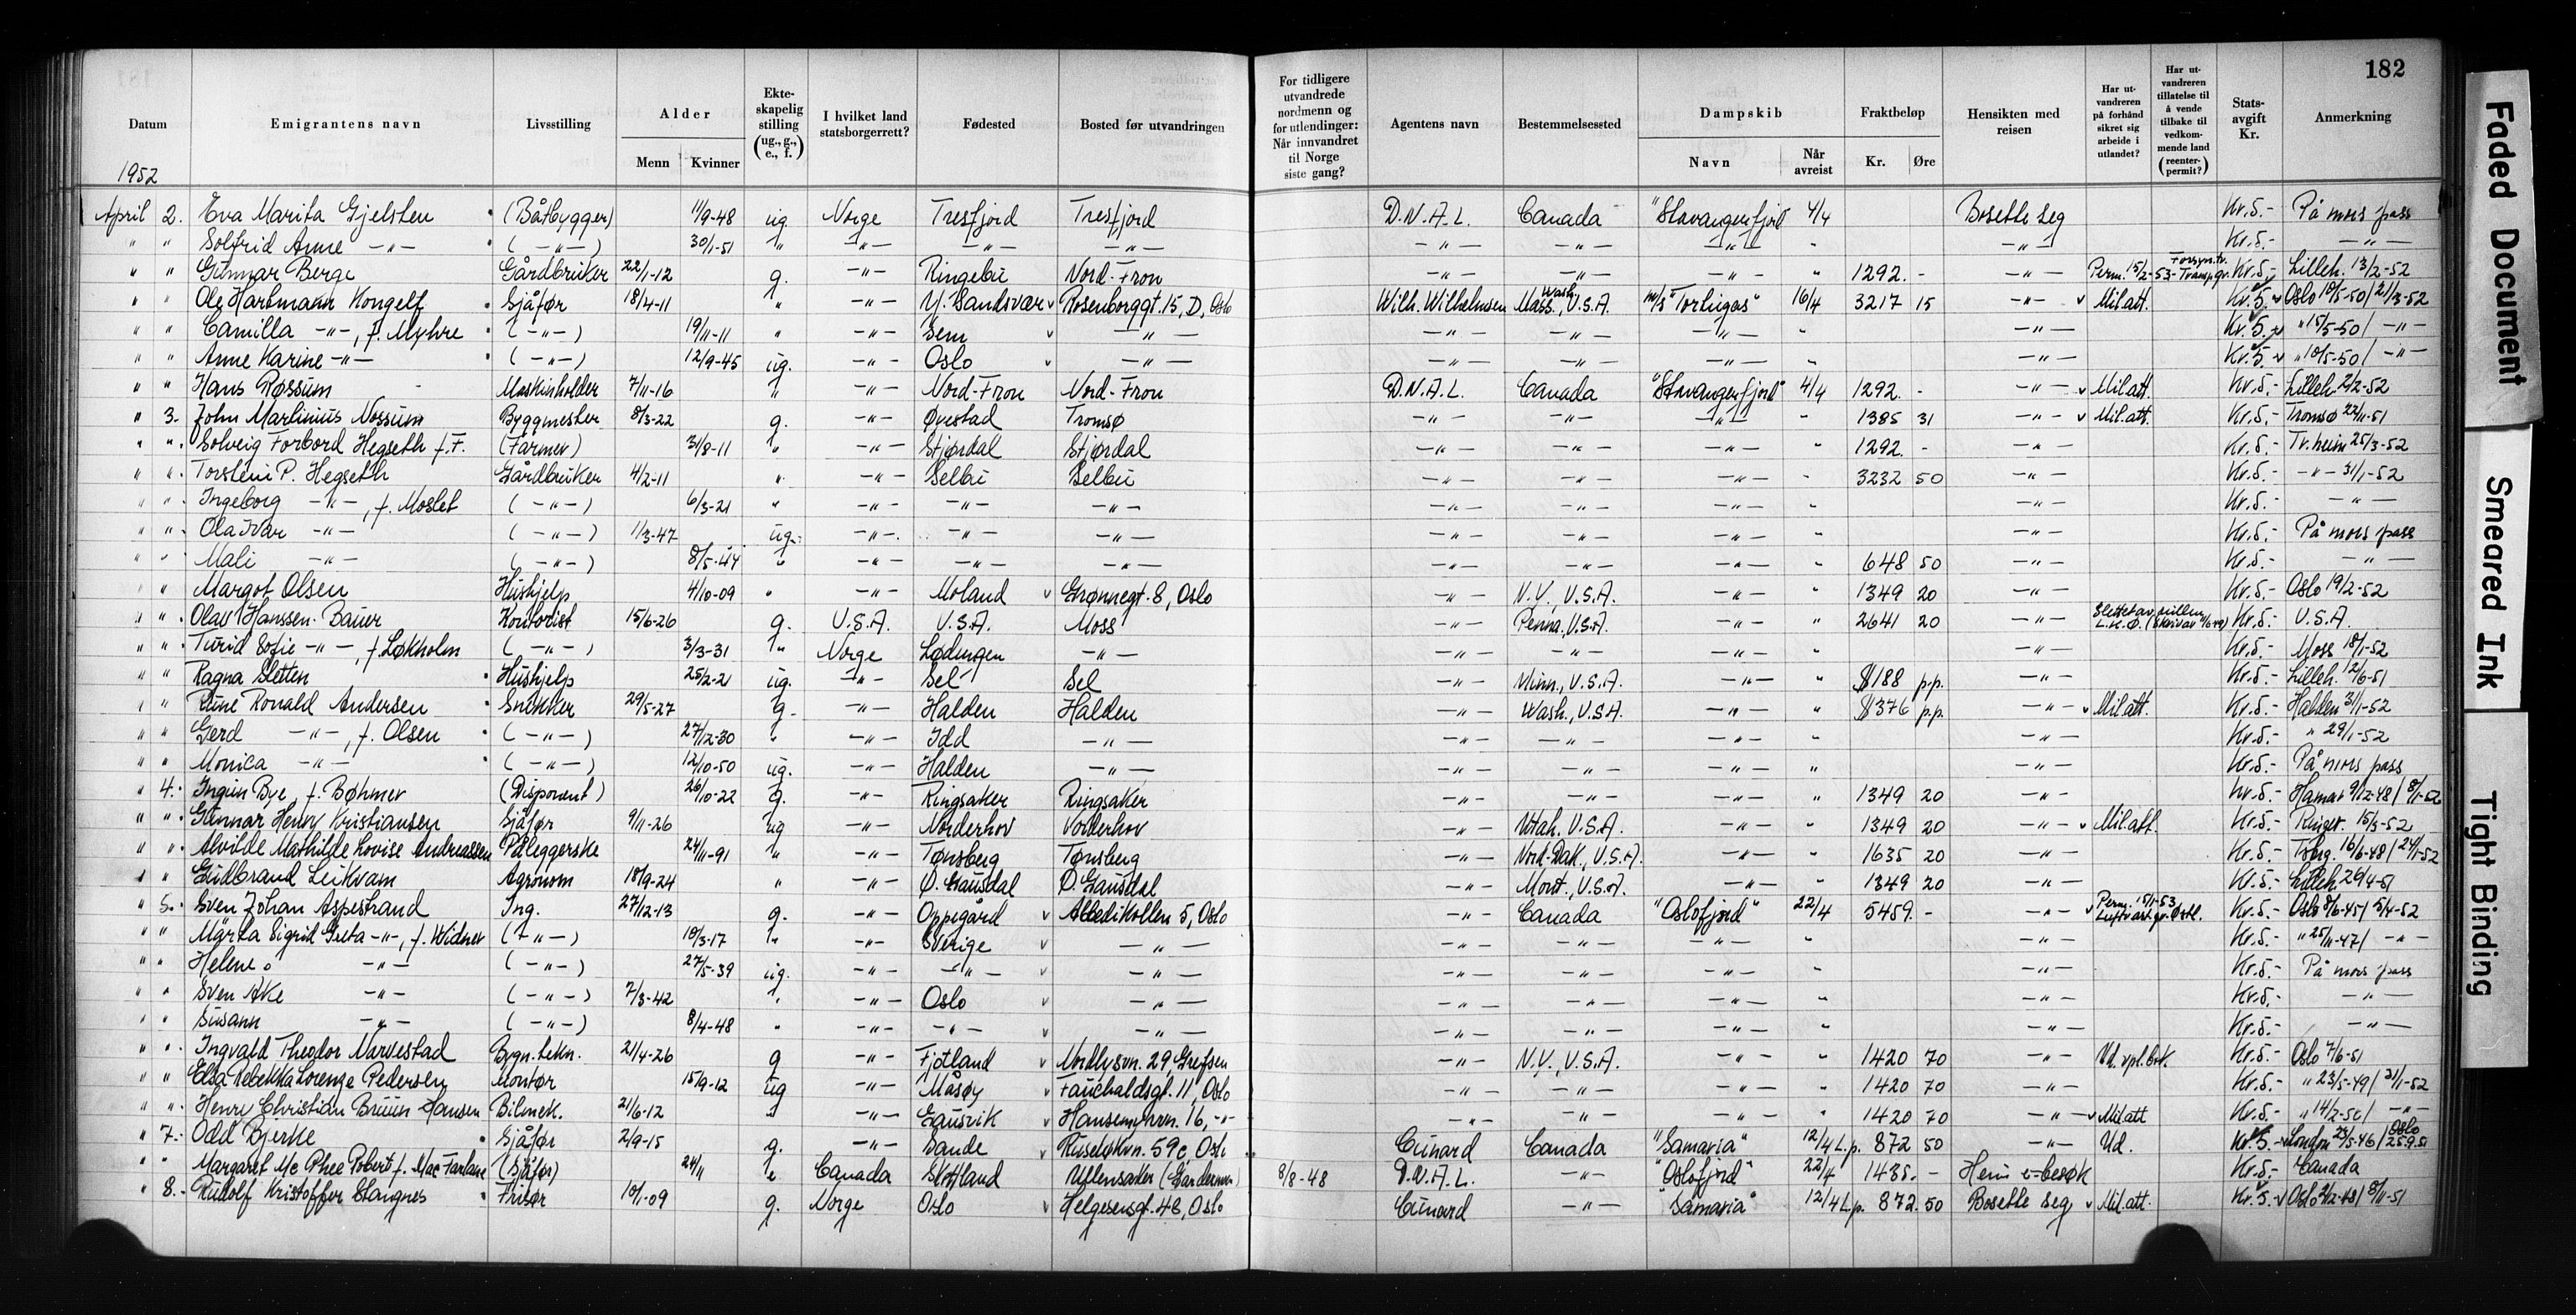 182
Datum
Emigrantens navn
Livsstilling
Alder
Menn
Kvinner
Ekteskapelig stilling (ug., g., e., f.)
I hvilket land statsborgerrett?
Fødested
Bosted før utvandringen
For tidligere utvandrede nordmenn og for utlendinger: Når innvandret til Norge siste gang?
Agentens navn
Bestemmelsessted
Dampskib
Navn
Når avreist
Fraktbeløp
Kr.
Øre
Hensikten med reisen
Har utvandreren på forhånd sikret sig arbeide i utlandet?
Har utvandreren tillatelse til å vende tilbake til vedkommende land (reenterpermit?)
Statsavgift Kr.
Anmerkning
1952
April 2. Eva Marita Gjelsten (Båtbygger) 11/9-48 ug. Norge Tresfjord Tresfjord D.N.A.L. Canada "Stavangerfjord" 4/4 Bosette seg Kr.5.- På mors pass
" " Solfrid Anne -"- (-"-) 30/1-51 " -"- -"- -"- -"- -"- -"- " -"- Kr.5.- -"-
" " Gunnar Berge Gårdbruker 22/1-12 g. -"- Ringebu Nord-Fron -"- -"- -"- " 1292.- -"- Perm. 15/2-53- Kr.5.- Lilleh. 13/2-52
" " Ole Hartmann Kongelf Sjåfør 18/4-11 " -"- Y. Sandsvær Rosenborggt. 15, D, Oslo Wilh. Wilhelmsen Wash., U.S.A. M/S "Tortugas" 16/4 3217 15 -"- Mil.att. Kr.5.- Oslo 10/5-50/21/3-52
" " Camilla -"-, f. Myhre (-"-) 19/11-11 " -"- Sem -"- -"- -"- -"- " -"- Kr.5.- " 15/5-50/ -"-
" " Anne Karine -"- (-"-) 12/9-45 ug. -"- Oslo -"- -"- -"- -"- " -"- Kr.5.- " 10/5-50/ -"-
" " Hans Røssum Maskinholder 7/11-16 " -"- Nord-Fron Nord-Fron D.N.A.L. Canada "Stavangerfjord" 4/4 1292.- -"- Mil.att. Kr.5.- Lilleh. 2/2-52
" 3. John Martinius Nossum Byggmester 8/3-22 g. -"- Øvestad Tromsø -"- -"- -"- " 1385 31 -"- Mil.att. Kr.5.- Tromsø 22/11-51
" " Solveig Forbord Hegseth f. F. (Farmer) 31/8-11 " -"- Stjørdal Stjørdal -"- -"- -"- " 1292.- -"- Kr.5.- Tr.heim 25/3-52
" " Torstein P. Hegseth Gårdbruker 4/2-11 " -"- Selbu Selbu -"- -"- -"- " 3232 50 -"- Kr.5.- -"- 31/1-52
" " Ingeborg -"-, f. Moslet (-"-) 6/3-21 " -"- -"- -"- -"- -"- -"- " -"- Kr.5.- -"-
" " Ola Ivar -"- (-"-) 11/3-47 ug. -"- -"- -"- -"- -"- -"- " -"- Kr.5.- På mors pass
" " Mali -"- (-"-) 8/5-44 " -"- -"- -"- -"- -"- -"- " 648 50 -"- Kr.5.- -"-
" " Margot Olsen Hushjelp 4/10-09 " -"- Moland Grønnegt. 8, Oslo -"- N.Y., U.S.A. -"- " 1349 20 -"- Kr.5.- Oslo 19/2-52
" " Olav Hanssen-Bauer Kontorist 15/6-26 g. U.S.A. U.S.A. Moss -"- Penna., U.S.A. -"- " 2641 20 -"- Kr.5.- U.S.A.
" " Turid Sofie -"-, f. Løkholm (-"-) 3/3-31 " Norge Lødingen -"- -"- -"- -"- " -"- Kr.5.- Moss 18/1-52
" " Ragna Sletten Hushjelp 25/2-21 ug. -"- Sel Sel -"- Minn., U.S.A. -"- " $188 p.p. -"- Kr.5.- Lilleh. 12/6-51
" " Rune Ronald Andersen Snekker 29/5-27 g. -"- Halden Halden -"- Wash., U.S.A. -"- " $376 p.p. -"- Mil.att. Kr.5.- Halden 31/1-52
" " Gerd -"-, f. Olsen (-"-) 27/12-30 " -"- Idd -"- -"- -"- -"- " -"- Kr.5.- " 29/1-52
" " Monica -"- (-"-) 12/10-50 ug. -"- Halden -"- -"- -"- -"- " -"- Kr.5.- På mors pass
" 4. Ingun Bye, f. Bøhmer (Disponent) 26/10-22 g. -"- Ringsaker Ringsaker -"- -"- -"- " 1349 20 -"- Kr.5.- Hamar 9/12-48/8/1-52
" " Gunnar Henry Kristiansen Sjåfør 9/11-26 ug -"- Norderhov Norderhov -"- Utah, U.S.A. -"- " 1349 20 -"- Mil.att. Kr.5.- Ringer. 15/3-52
" " Alvilde Mathilde Lovise Andreassen Påleggerske 24/11-91 " -"- Tønsberg Tønsberg -"- Nord-Dak., U.S.A. -"- " 1635 20 -"- Kr.5.- Tbrg. 16/6-48/24/1-52
" " Gudbrand Leikvam Agronom 18/9-24 " -"- Ø. Gausdal Ø. Gausdal -"- Mont., U.S.A. -"- " 1349 20 -"- Kr.5.- Lilleh. 29/4-51
" 5. Sven Johan Aspestrand Ing. 27/12-13 g. -"- Oppegård Abbedikollen 5, Oslo -"- Canada "Oslofjord" 22/4 5459.- -"- Perm. 15/1-53 Kr.5.- Oslo 8/6-45/5/4-52
" " Märta Sigrid Greta -"-, f. Widner (-"-) 10/3-17 " -"- Sverige -"- -"- -"- -"- " -"- Kr.5.- " 25/11-47/ -"-
" " Helene -"- (-"-) 27/5-39 ug. -"- -"- -"- -"- -"- -"- " -"- Kr.5.- På mors pass
" " Sven Åke -"- (-"-) 7/3-42 " -"- Oslo -"- -"- -"- -"- " -"- Kr.5.- -"-
" " Susann -"- (-"-) 8/4-48 " -"- -"- -"- -"- -"- -"- " -"- Kr.5.- -"-
" " Ingvald Theodor Narvestad Bygn.tekn. 21/4-26 g -"- Fjotland Nordlysvn. 29, Grefsen -"- N.Y., U.S.A. -"- " 1420 70 -"- Kr.5.- Oslo 7/6-51
" " Elsa Rebekka Lorenze Pedersen Montør 15/9-12 ug -"- Måsøy Fauchaldsgt. 11, Oslo -"- -"- -"- " 1420 70 Kr.5.- " 23/5-49/31/1-52
" " Henry Christian Bruun Hansen Bilmek. 21/6-12 " -"- Gausvik Hansemyrvn. 16, -"- -"- -"- -"- " 1420 70 -"- Mil.att Kr.5.- " 14/2-50/ -"-
" 7. Odd Bjerke Sjåfør 2/9-15 g. -"- Sande Ruseløkvn. 59c, Oslo Cunard Canada "Samaria" 12/4 L.p. 872 50 -"- Ud. Kr.5.- London 23/5-46/Oslo 25.9.51
" " Margaret Mc Phee Robert f. Mac Farlane (Sjåfør) 24/11 e Canada Skottland Ullensaker (Gardermoen) 8/8-48 D.N.A.L. -"- "Oslofjord" 22/4 1435.- Hem e-besøk Kr.5.- Canada
" 8. Rudolf Kristoffer Stangnes Frisør 10/1-09 g. Norge Oslo Helgesensgt. 48, Oslo Cunard -"- "Samaria" 12/4 L.p. 872.50 Bosette seg Mil.att. Kr.5.- Oslo 2/12-48/8/11-51
Faded Document
Smeared Ink
Tight Binding